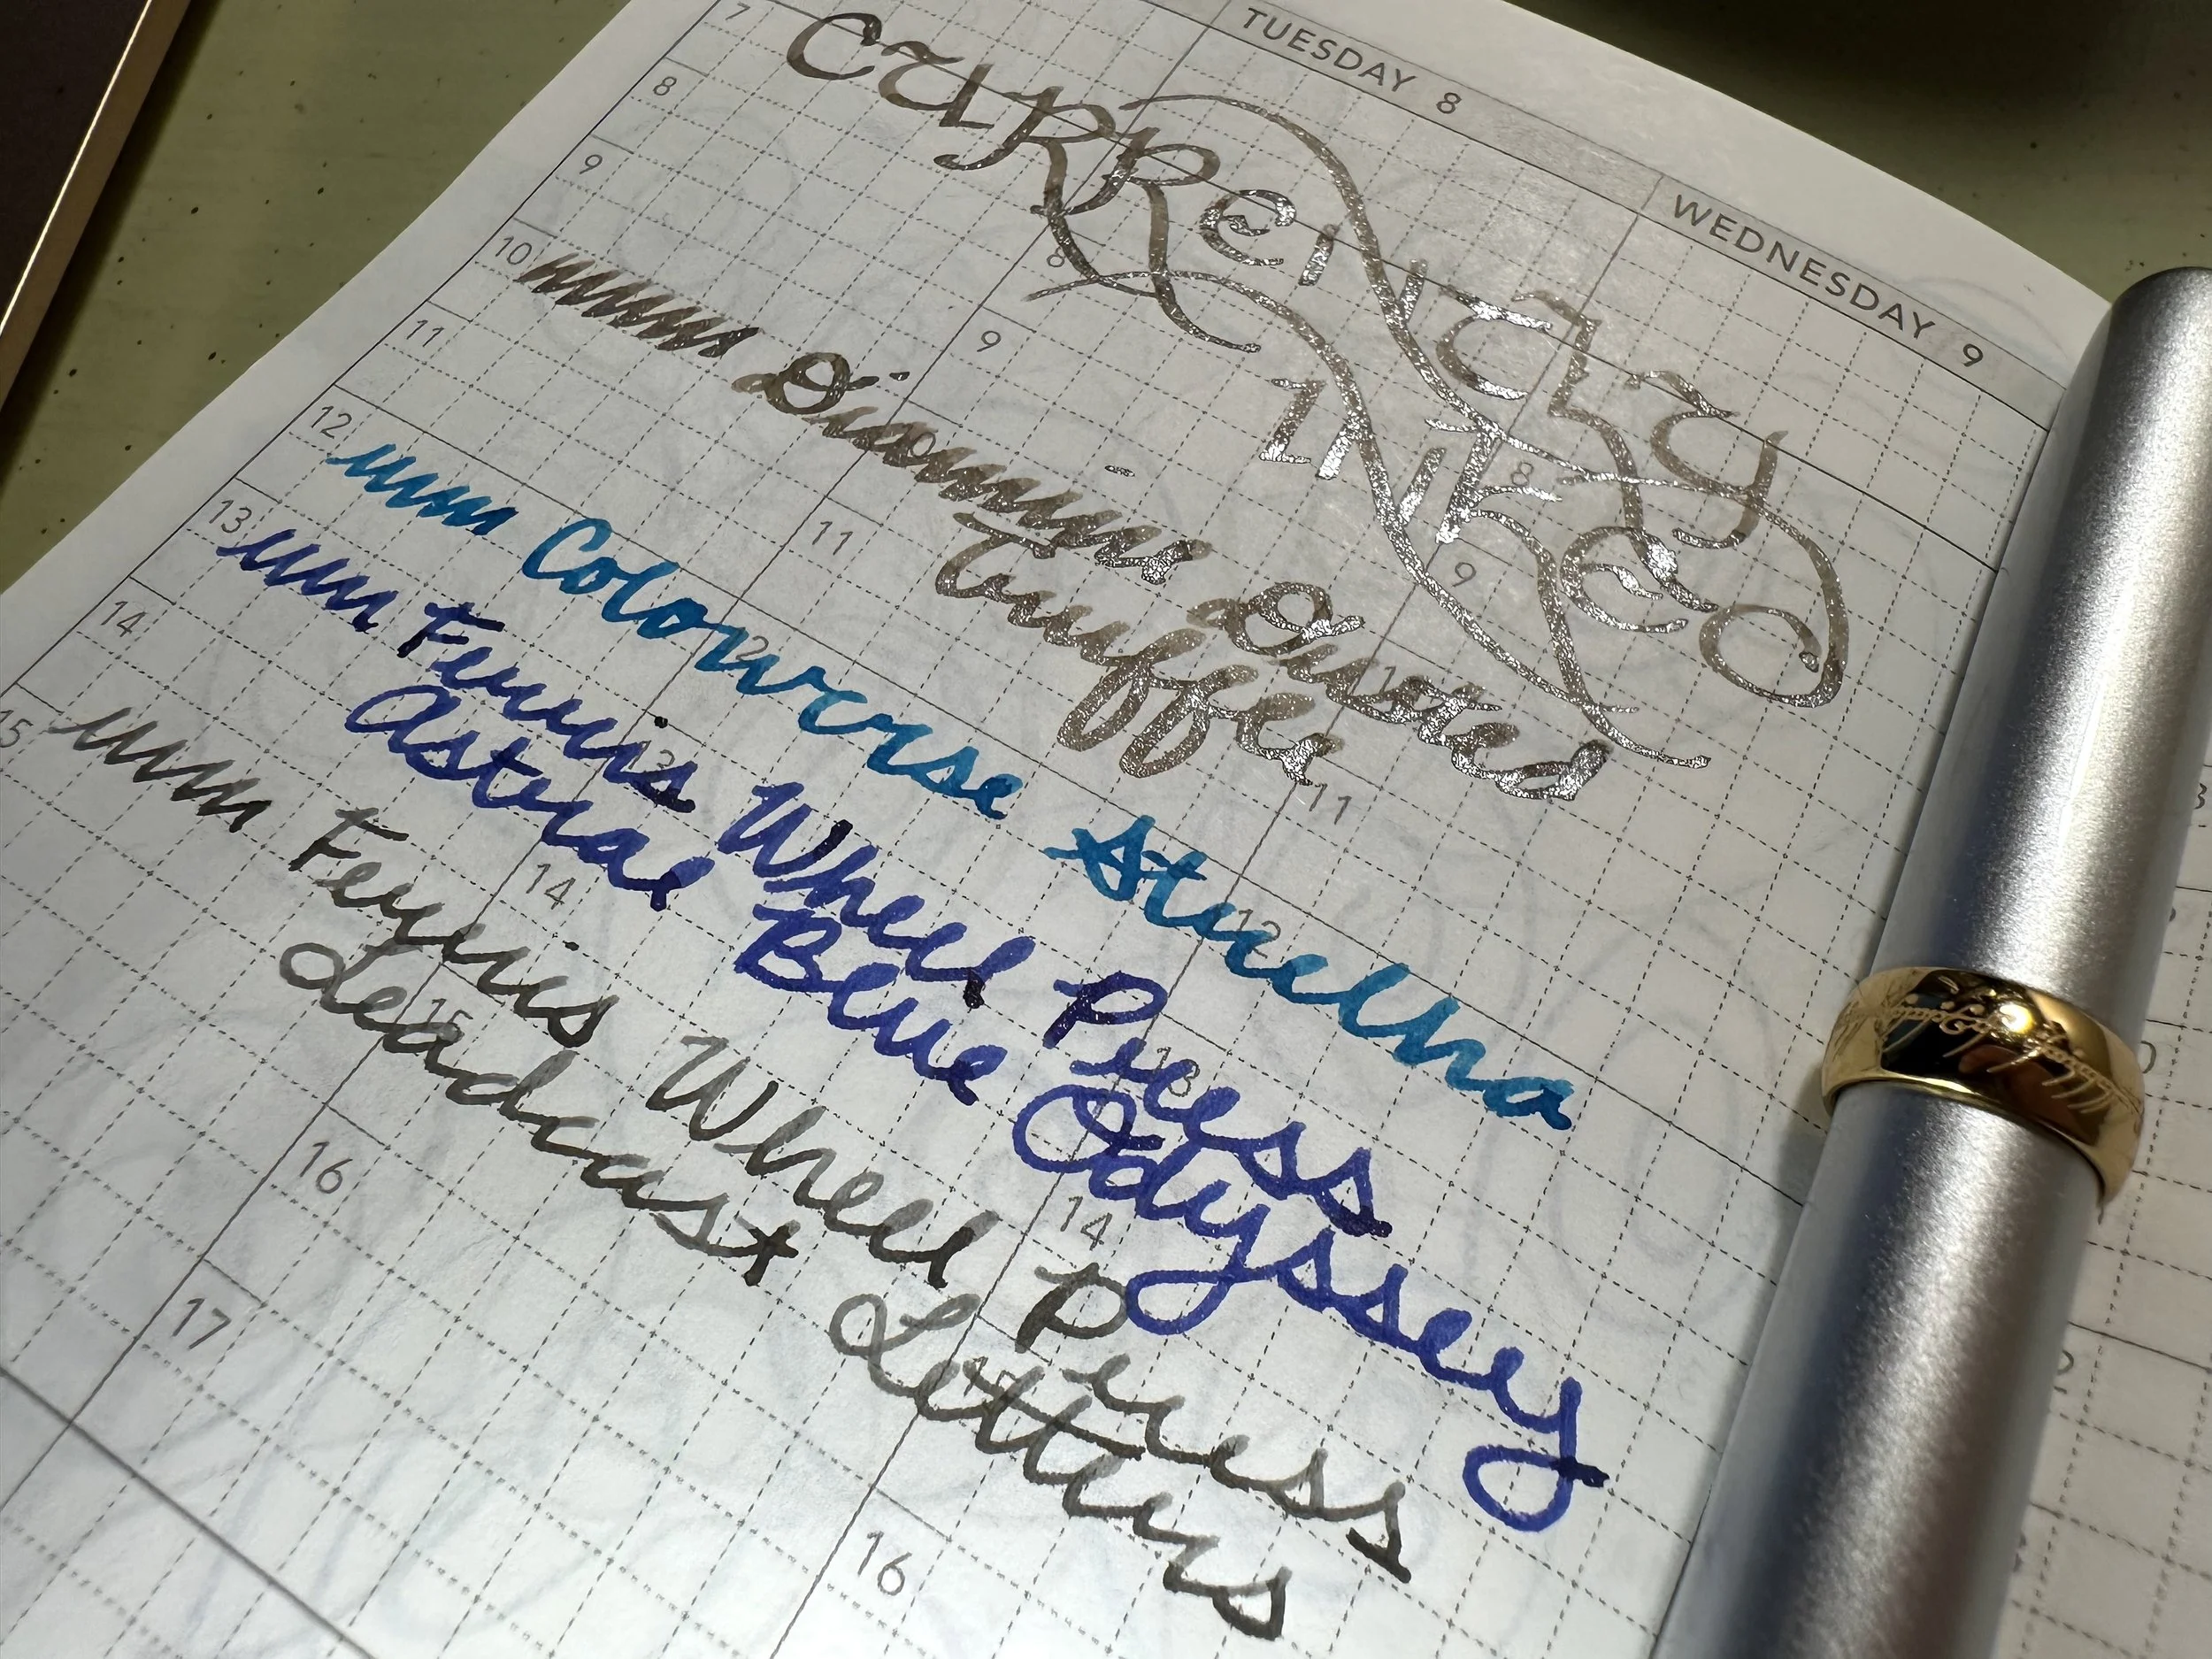 TUESDAY 8
WEDNESDAY 9
7
8
9
10
11
12
13
14
15
16
17
8
9
11
12
13
14
15
16
8
9
11
12
13
14
Currently
Inked
Diamine Dusted
Truffle
Colorverse Stucha
Ferris Wheel Press
Astral Blue Odyssey
Ferris Wheel Press
Leadcast Letters